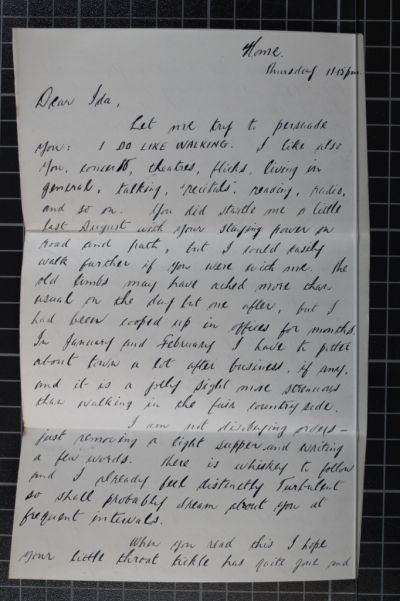 Home.
Thursday 11.15pm.
Dear Ida,
Let me try to persuade
you: I DO LIKE WALKING. I like also
you, concerts, theatres, flicks, living in
general, talking, 'recitals', reading, radio,
and so on. You did startle me a little
last August with your staying power on
road and path, but I could easily
walk further if you were with me. The
old limbs may have ached more than
usual on the day but one after, but I
had been cooped up in offices for months.
In January and February I have to
about town a lot after business, if any,
and it is a jolly sight more strenuous
than walking in the fair country side.
I am not disobeying orders –
just removing a light supper and writing
a few words. There is whiskey to follow
and I already feel distinctly turbulent
so shall probably dream about you at
frequent intervals.
When you read this I hope
your little throat tickle has quite gone and